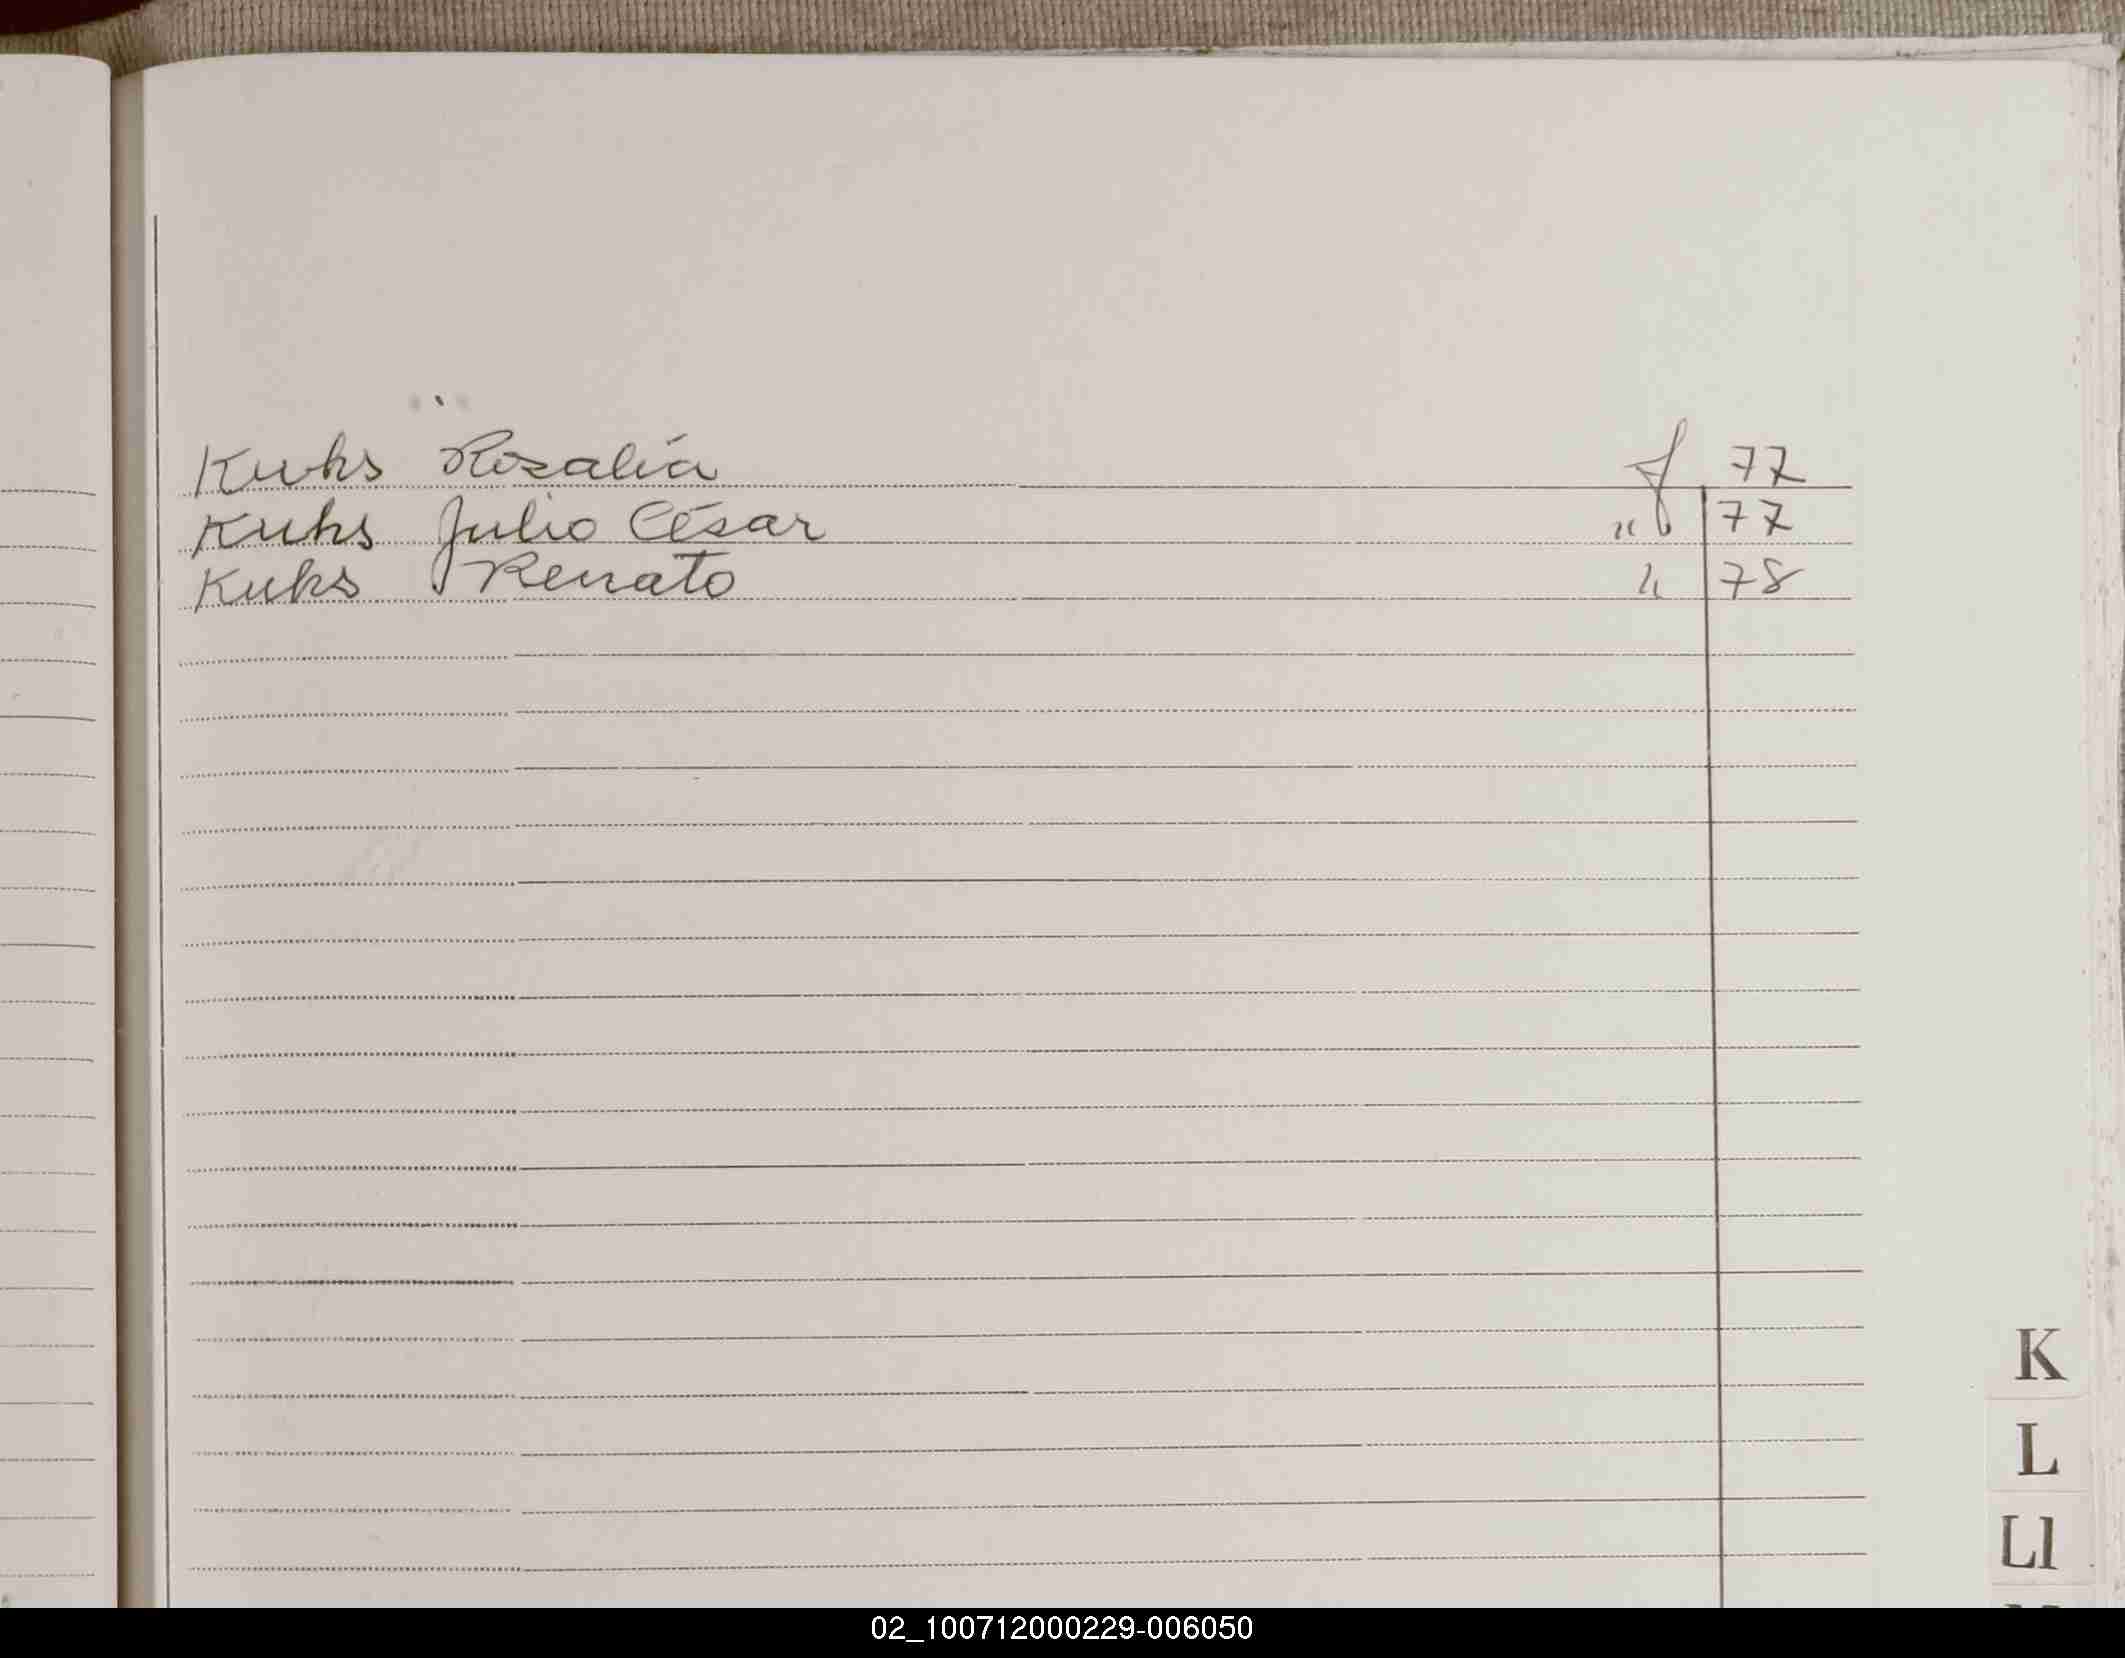 Kuks Rosalía f 77
Kuks Julio César " 77
Kuks Renato " 78
K
L
Ll
02_100712000229-006050